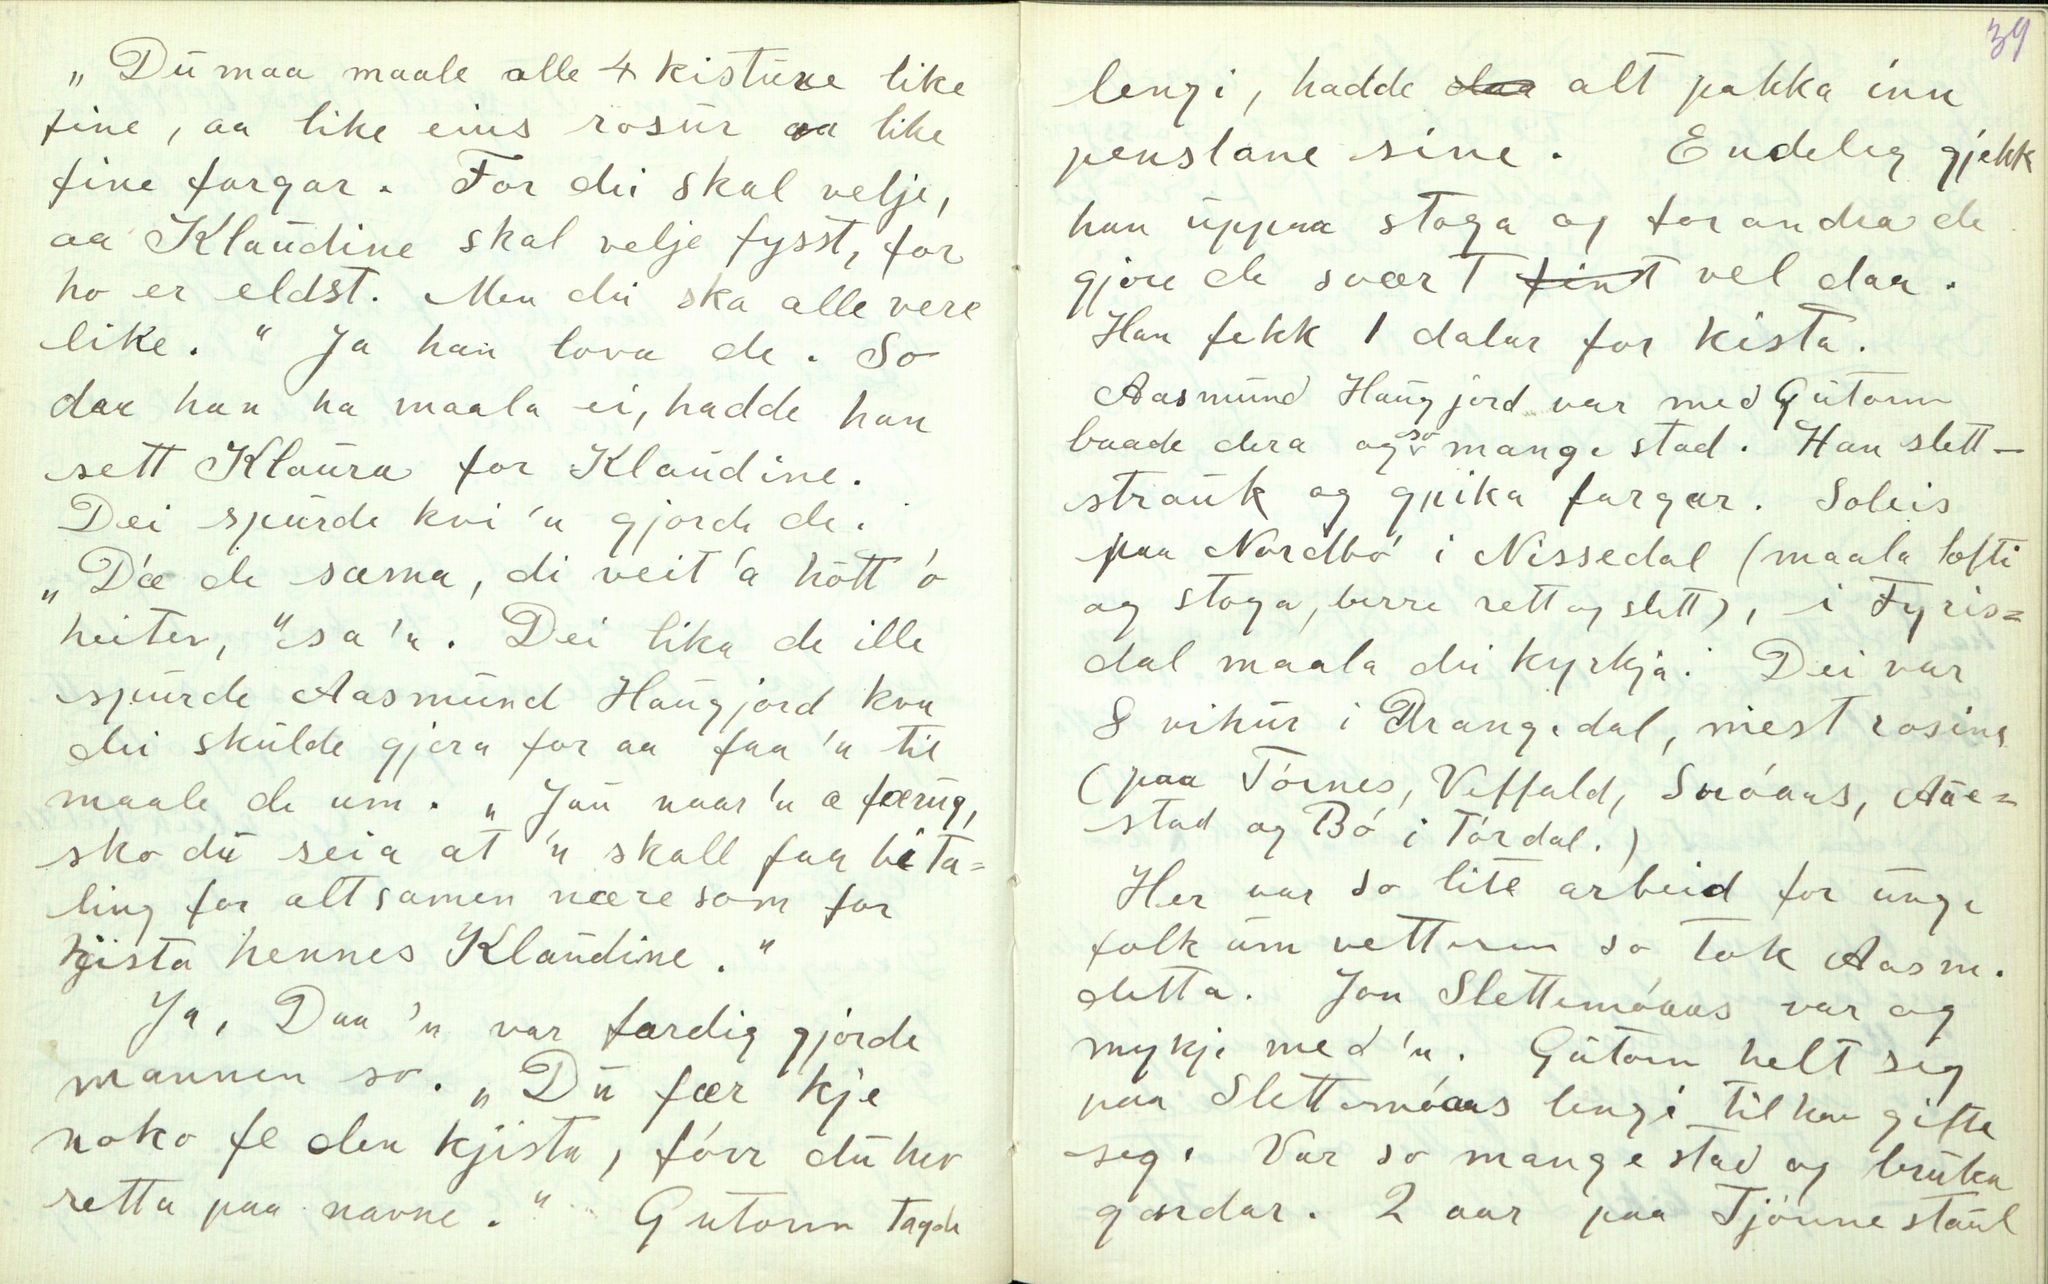 „Du maa maale alle 4 kistune like
fine, aa like eins rosur aa like
fine fargar. For dei skal velje,
aa Klaudine skal velje fysst, for
ho er eldst. Men dei ska alle vere
like." Ja han lova de. So
daa han ha maala ei, hadde han
sett Klaura for Klaudine.
Dei spurde kvi 'n gjorde de.
„D'æ de sæma, di veit 'a hött 'o
heiter," sa 'n. Dei lika de ille
spurde Aasmund Haugjord kva
dei skulde gjera for aa faa 'n til
maale de um. „Jau naar 'n æ færug,
sko du seia at 'n skall faa beta=
ling for altsamen nære som for
kjista hennes Klaudine."
Ja, Daa 'n var færdig gjorde
mannen so. „Du fær kje
noko fe den kjista, fórr du hev
retta paa navne." Gutorm tagde
39
lengi, hadde daa alt pakka inn
penslane sine. Endeleg gjekk
han uppaa stoga og forandra de
gjore de svært fint vel daa.
Han fekk 1 dalar for kista.
Aasmund Haugjord var med Gutorm
baade dera og so mange stad. Han slett-
strauk og gjika fargar. Soleis
paa Nordbó i Nissedal (maala lofti
og stoga, berre rett og slett), i Fyris=
dal maala dei kyrkja. Dei var
8 vikur i Drangedal, mest rosing
(paa Tórnes, Veffald, Snóaas, Aue=
stad og Bó i Tórdal.)
Her var so lite arbeid for unge
folk um vetteren so tok Aasm.
detta. Jon Slettemóaas var og
mykje med 'n. Gutorm helt seg
paa Slettemóaas lengi til han gifta
seg. Var so mange stad og bruka
gardar. 2 aar paa Tjónnestaul